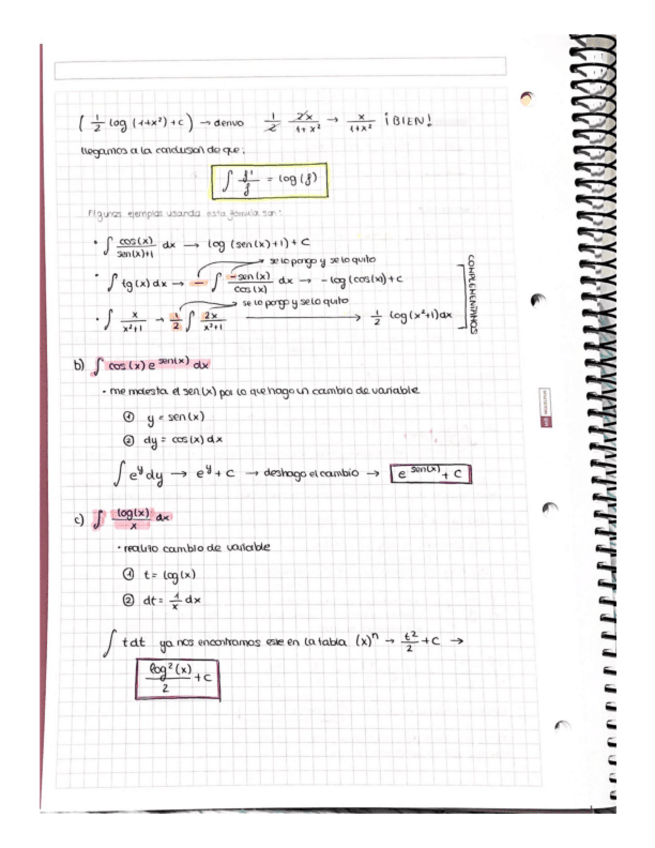 ( 1/2 log (1+x²) + c ) → derivo 1/2 2x/1+x² → x/1+x² ¡BIEN!
llegamos a la conclusión de que:
∫ f'/f = log(f)
Algunos ejemplos usando esta fórmula son:
• ∫ cos(x)/sen(x)+1 dx → log (sen(x)+1) + C
se lo pongo y se lo quito
• ∫ tg(x) dx → - ∫ -sen(x)/cos(x) dx → - log (cos(x)) + C
se lo pongo y se lo quito
• ∫ x/x²+1 → 1/2 ∫ 2x/x²+1 → 1/2 log(x²+1)dx
COMPLEMENTAMOS
b) ∫ cos(x) e^sen(x) dx
• me molesta el sen(x) por lo que hago un cambio de variable
① y = sen(x)
② dy = cos(x) dx
∫ e^y dy → e^y + c → deshago el cambio → e^sen(x) + C
c) ∫ log(x)/x dx
• realizo cambio de variable
① t = log(x)
② dt = 1/x dx
∫ t dt ya nos encontramos este en la tabla (x)^n → t²/2 + C →
log²(x)/2 + C